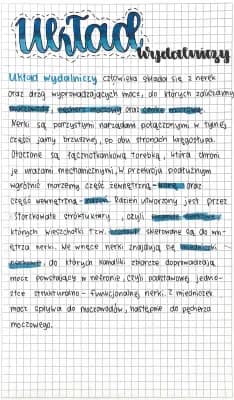 Układ
wydalniczy
Układ wydalniczy człowieka składa się z nerek
oraz dróg wyprowadzających mocz, do których zaliczamy
moczowody, pęcherz moczowy oraz cewkę moczową.
Nerki są parzystymi narządami położonymi w tylnej
części jamy brzusznej, po obu stronach kręgosłupa.
Otoczone są łącznotkankową torebką, która chroni
je urazami mechanicznymi. W przekroju podłużnym
wyróżnić możemy część zewnętrzną - korę oraz
część wewnętrzną - rdzeń. Rdzeń utworzony jest przez
stożkowate struktury, czyli
których wierzchołki tzw. skierowane są do wn-
ętrza nerki. We wnęce nerki znajdują się miedniczki
nerkowe, do których kanaliki zbiorcze doprowadzają
mocz powstający w nefronie, czyli podstawowej jedno-
stce strukturalno - funkcjonalnej nerki. Z miedniczek
mocz spływa do moczowodów, następnie do pęcherza
moczowego.